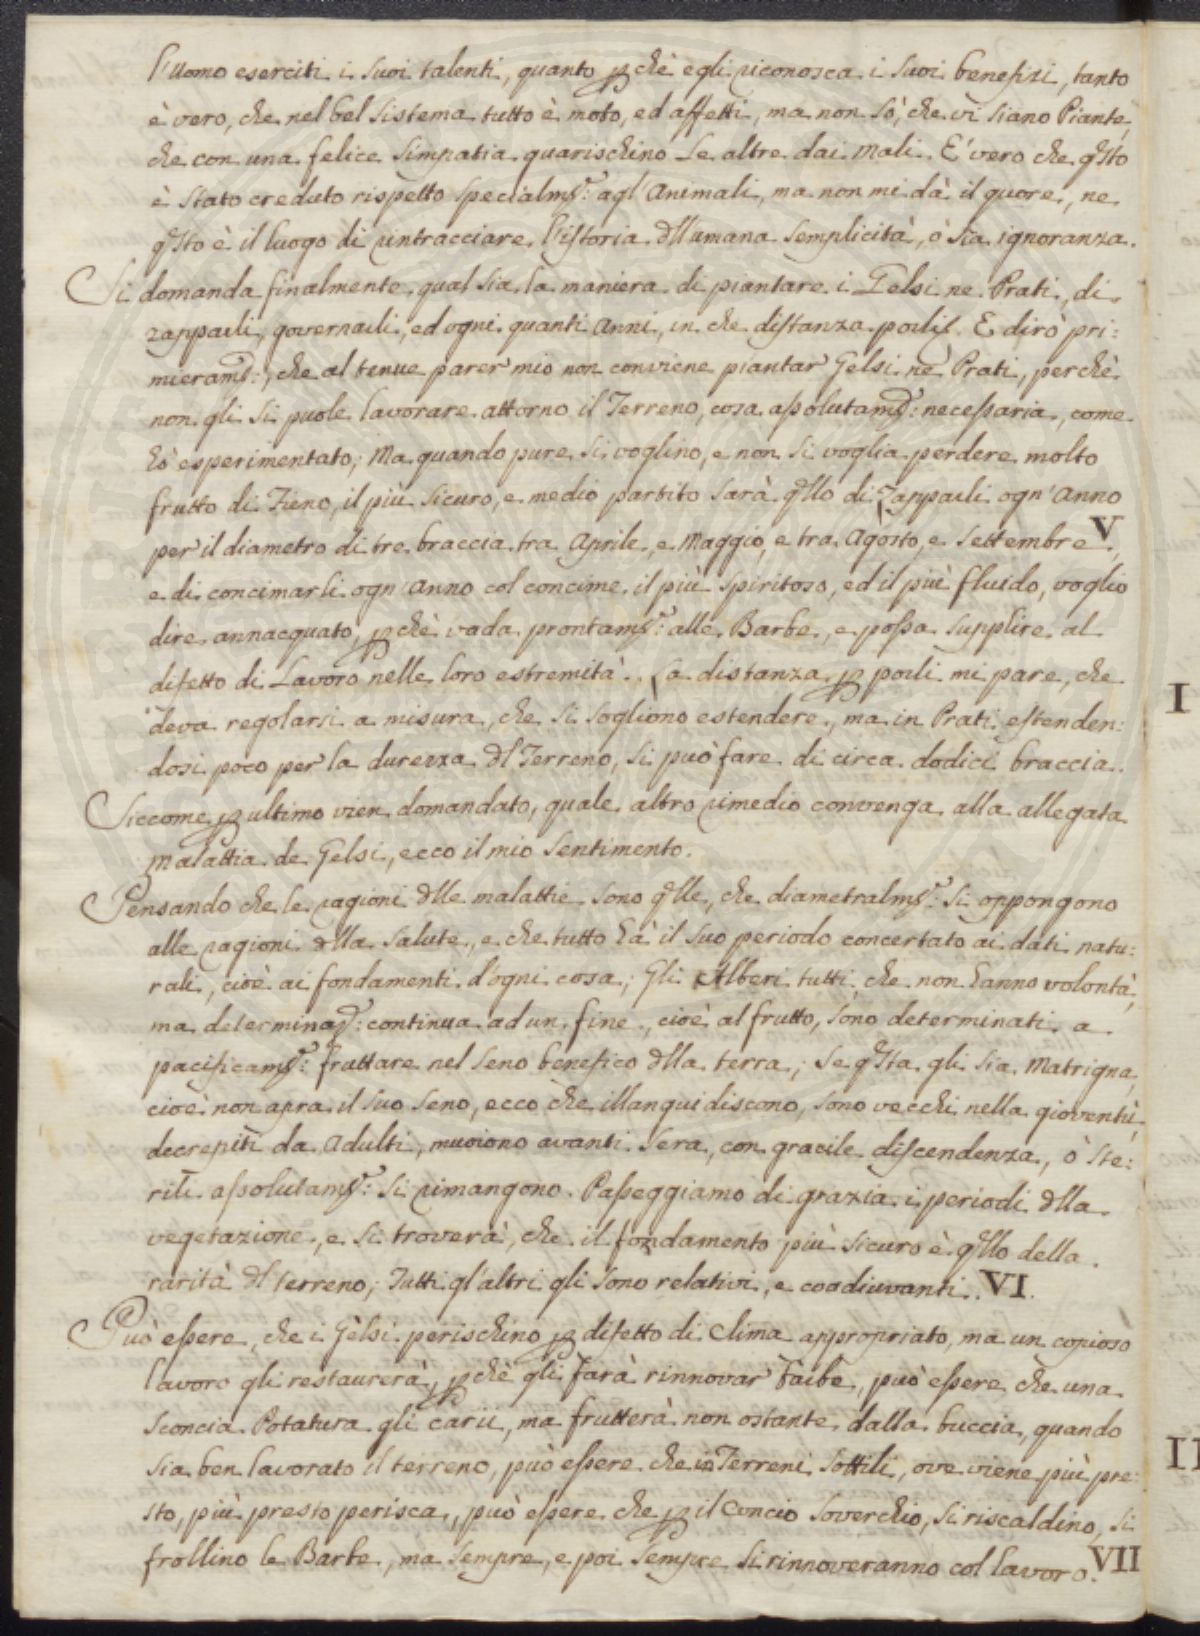 l'Uomo eserciti i suoi talenti, quanto p chè egli riconosca i suoi benefizi, tanto
è vero, che nel bel sistema tutto è moto, ed affetti, ma non sò, che vi siano Piante,
che con una felice simpatia guarischino le altre dai mali. E' vero che qsto
è stato creduto rispetto specialmte: agl'Animali, ma non mi dà il quore, ne
qsto è il luogo di rintracciare l'istoria dll'umana semplicità, ò sia ignoranza.
Si domanda finalmente qual sia la maniera di piantare i Gelsi ne Prati, di
zapparli, governarli, ed ogni quanti Anni, in che distanza porli. E dirò pri:
mieramte:, che al tenue parer mio non conviene piantar Gelsi ne Prati, perchè
non gli si puole lavorare attorno il Terreno, cosa assolutamte: necessaria, come
hò esperimentato; Ma quando pure si voglino, e non si voglia perdere molto
frutto di Fieno, il più sicuro, e medio partito sarà qllo di zapparli ogn'Anno
per il diametro di tre braccia tra Aprile, e Maggio, e tra Agosto, e Settembre V.,
e di concimarli ogn'Anno col concime il più spiritoso, ed il più fluido, voglio
dire annacquato, p chè vada prontamte: alle Barbe, e possa supplire al
difetto di Lavoro nelle loro estremità. La distanza p porli mi pare, che
deva regolarsi a misura, che si sogliono estendere, ma in Prati estenden:
dosi poco per la durezza dl Terreno, si può fare di circa dodici braccia.
Siccome p ultimo vien domandato, quale altro rimedio convenga alla allegata
malattia de Gelsi, ecco il mio sentimento.
Pensando che le ragioni dlle malattie sono qlle, che diametralmte: si oppongono
alle ragioni dlla salute, e che tutto hà il suo periodo concertato ai dati natu:
rali, cioè ai fondamenti d'ogni cosa; Gli Alberi tutti, che non hanno volontà,
ma determinae: continua ad un fine, cioè al frutto, sono determinati a
pacificamte: fruttare nel seno benefico dlla terra; se qsta gli sia Matrigna,
cioè non apra il suo seno, ecco che illanguidiscono, sono vecchi nella gioventù,
decrepiti da Adulti, muoiono avanti sera, con gracile discendenza, ò ste:
rili assolutamte: si rimangono. Passeggiamo di grazia i periodi dlla
vegetazione, e si troverà, che il fondamento più sicuro è qllo della
rarità dl terreno; Tutti gl'altri gli sono relativi, e coadiuvanti. VI.
Può essere, che i Gelsi perischino p difetto di Clima appropriato, ma un copioso
lavoro gli restaurerà, p chè gli farà rinnovar barbe, può essere che una
sconcia Potatura gli carii, ma frutterà non ostante dalla buccia, quando
sia ben lavorato il terreno, può essere che in Terreni sottili, ove viene più pre:
sto, più presto perisca, può essere che p il Concio soverchio, si riscaldino, si
frollino le Barbe, ma sempre, e poi sempre si rinnoveranno col lavoro. VII
I
II